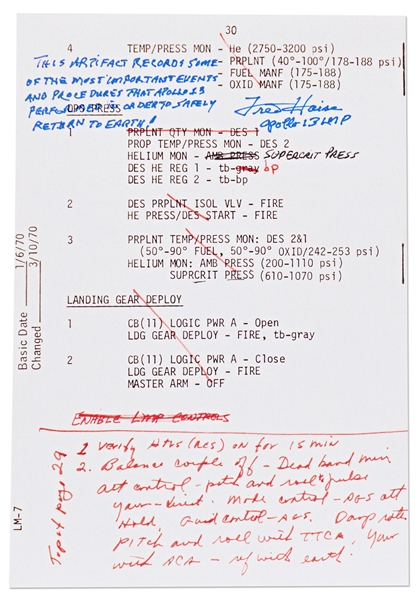 30
4 TEMP/PRESS MON - He (2750-3200 psi)
- PRPLNT (40°-100°/178-188 psi)
- FUEL MANF (175-188)
- OXID MANF (175-188)
THIS ARTIFACT RECORDS SOME
OF THE MOST IMPORTANT EVENTS
AND PROCEDURES THAT APOLLO 13
PERFORMED IN ORDER TO SAFELY
RETURN TO EARTH!
Fred Haise
Apollo 13 LMP
DPS PRESS
1 PRPLNT QTY MON - DES 1
PROP TEMP/PRESS MON - DES 2
HELIUM MON - AMB PRESS SUPERCRIT PRESS
DES HE REG 1 - tb-gray bp
DES HE REG 2 - tb-bp
2 DES PRPLNT ISOL VLV - FIRE
HE PRESS/DES START - FIRE
3 PRPLNT TEMP/PRESS MON: DES 2&1
(50°-90° FUEL, 50°-90° OXID/242-253 psi)
HELIUM MON: AMB PRESS (200-1110 psi)
SUPRCRIT PRESS (610-1070 psi)
LANDING GEAR DEPLOY
1 CB(11) LOGIC PWR A - Open
LDG GEAR DEPLOY - FIRE, tb-gray
2 CB(11) LOGIC PWR A - Close
LDG GEAR DEPLOY - FIRE
MASTER ARM - OFF
Basic Date 1/6/70
Changed 3/10/70
LM-7
ENABLE LMP CONTROLS
Top of page 29
1 Verify Htrs (RCS) on for 15 min
2. Balance couple off - Dead band min
att control - pitch and roll pulse
yaw - direct. Mode control - AGS att
Hold, Guid control - AGS. Damp rates
PITCH and roll with TTCA, Yaw
with ACA - with earth.